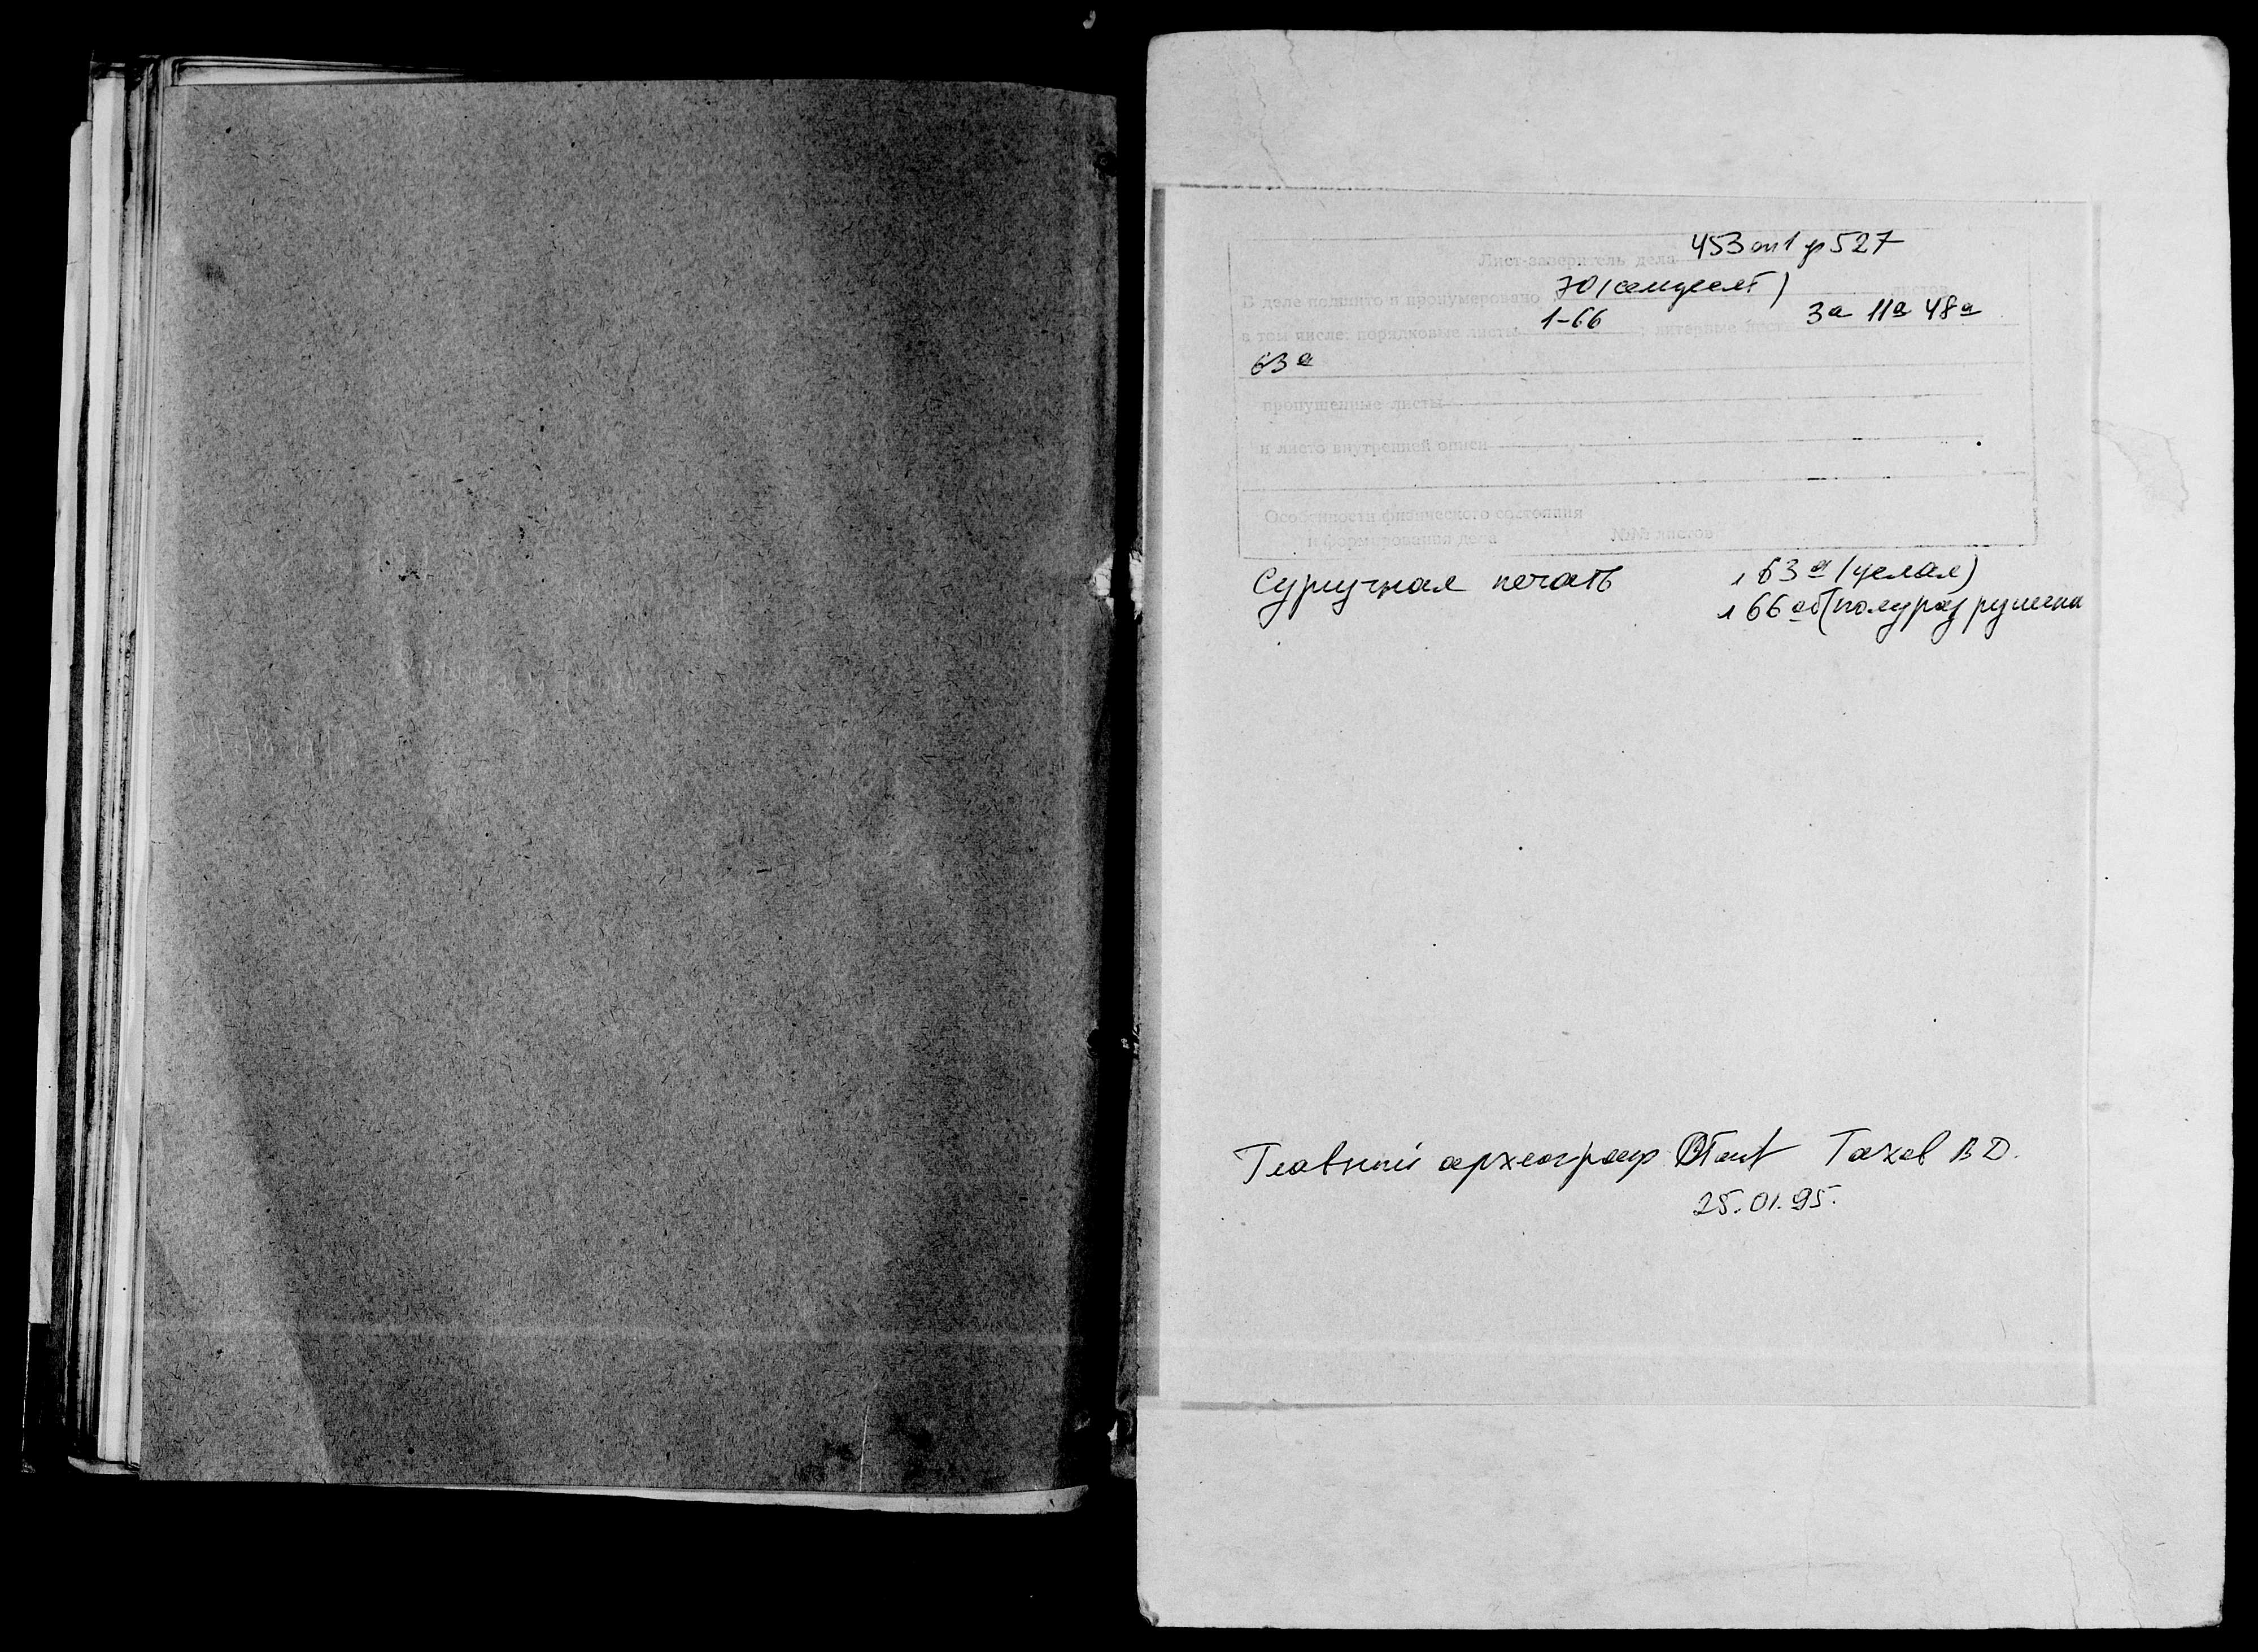 Лист-заверитель дела 453 оп 1 д 527
В деле подшито и пронумеровано 70 (семьдесят) листов
в том числе: порядковые листы 1-66; литерные листы 3а 11а 48а
63а
пропущенные листы
и листо внутренней описи
Особенности физического состояния
и формирования дела №№ листов
Сургучная печать л 63а (целая)
л 66 об (полуразрушена
Главный археограф Тахов В Д.
25.01.95.